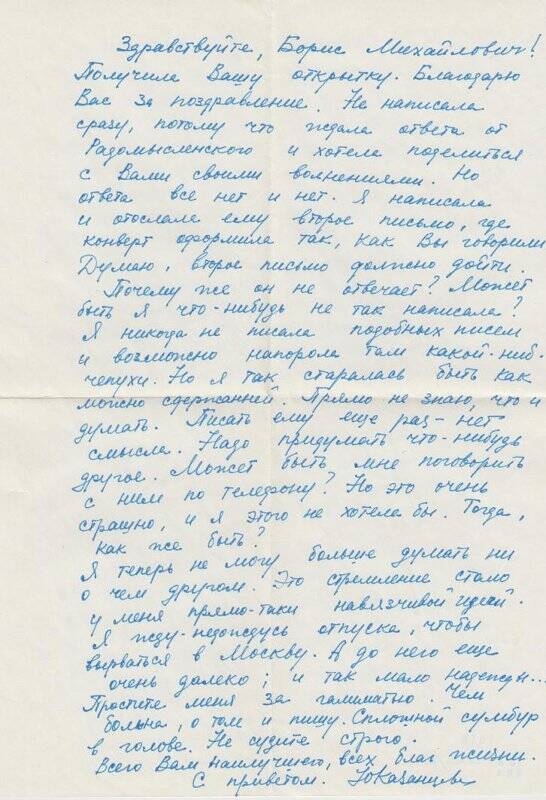 Здравствуйте, Борис Михайлович!
Получила Вашу открытку. Благодарю
Вас за поздравление. Не написала
сразу, потому что ждала ответа от
Радомысленского и хотела поделиться
с Вами своими волнениями. Но
ответа все нет и нет. Я написала
и отослала ему второе письмо, где
конверт оформила так, как Вы говорили
Думаю, второе письмо должно дойти.
Почему же он не отвечает? Может
быть я что-нибудь не так написала?
Я никогда не писала подобных писем
и возможно напорола там какой-ниб.
чепухи. Но я так старалась быть как
можно сдержанней. Прямо не знаю, что и
думать. Писать ему еще раз - нет
смысла. Надо придумать что-нибудь
другое. Может быть мне поговорить
с ним по телефону? Но это очень
страшно, и я этого не хотела бы. Тогда,
как же быть?
Я теперь не могу больше думать ни
о чем другом. Это стремление стало
у меня прямо-таки навязчивой идеей.
Я жду-недождусь отпуска, чтобы
вырваться в Москву. А до него еще
очень далеко; и так мало надежды...
Простите меня за галиматью. Чем
больна, о том и пишу. Сплошной сумбур
в голове. Не судите строго.
Всего Вам наилучшего, всех благ жизни.
С приветом. ЮКазанцева